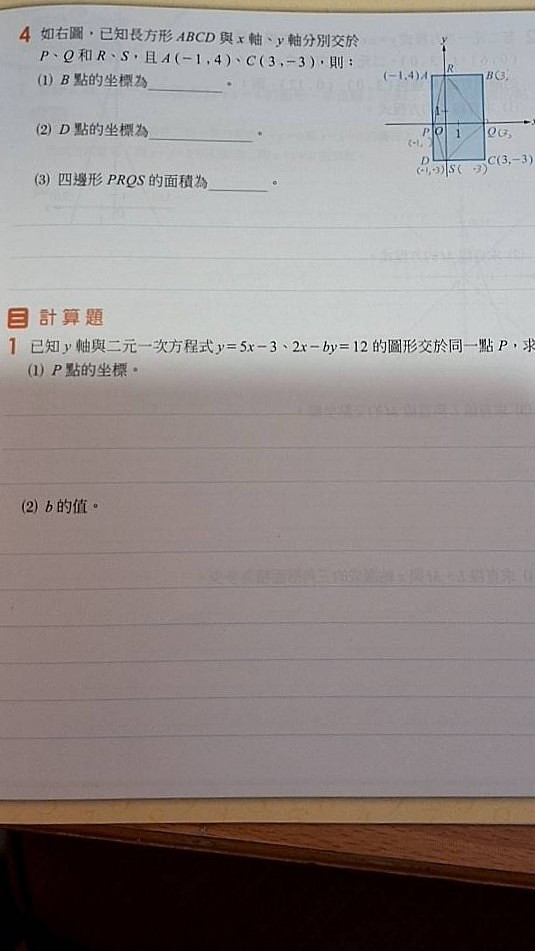 4 如右圖，已知長方形 ABCD 與 x 軸、y 軸分別交於
P、Q 和 R、S，且 A(-1,4)、C(3,-3)，則：
(1) B 點的坐標為________。
(2) D 點的坐標為________。
(3) 四邊形 PRQS 的面積為________。
y
R
(-1,4) A
B(3,
1
P O 1
Q(3,
(-1,
D
C(3,-3)
(-1,-3)
S( -3)
三 計算題
1 已知 y 軸與二元一次方程式 y=5x-3、2x-by=12 的圖形交於同一點 P，求
(1) P 點的坐標。
(2) b 的值。